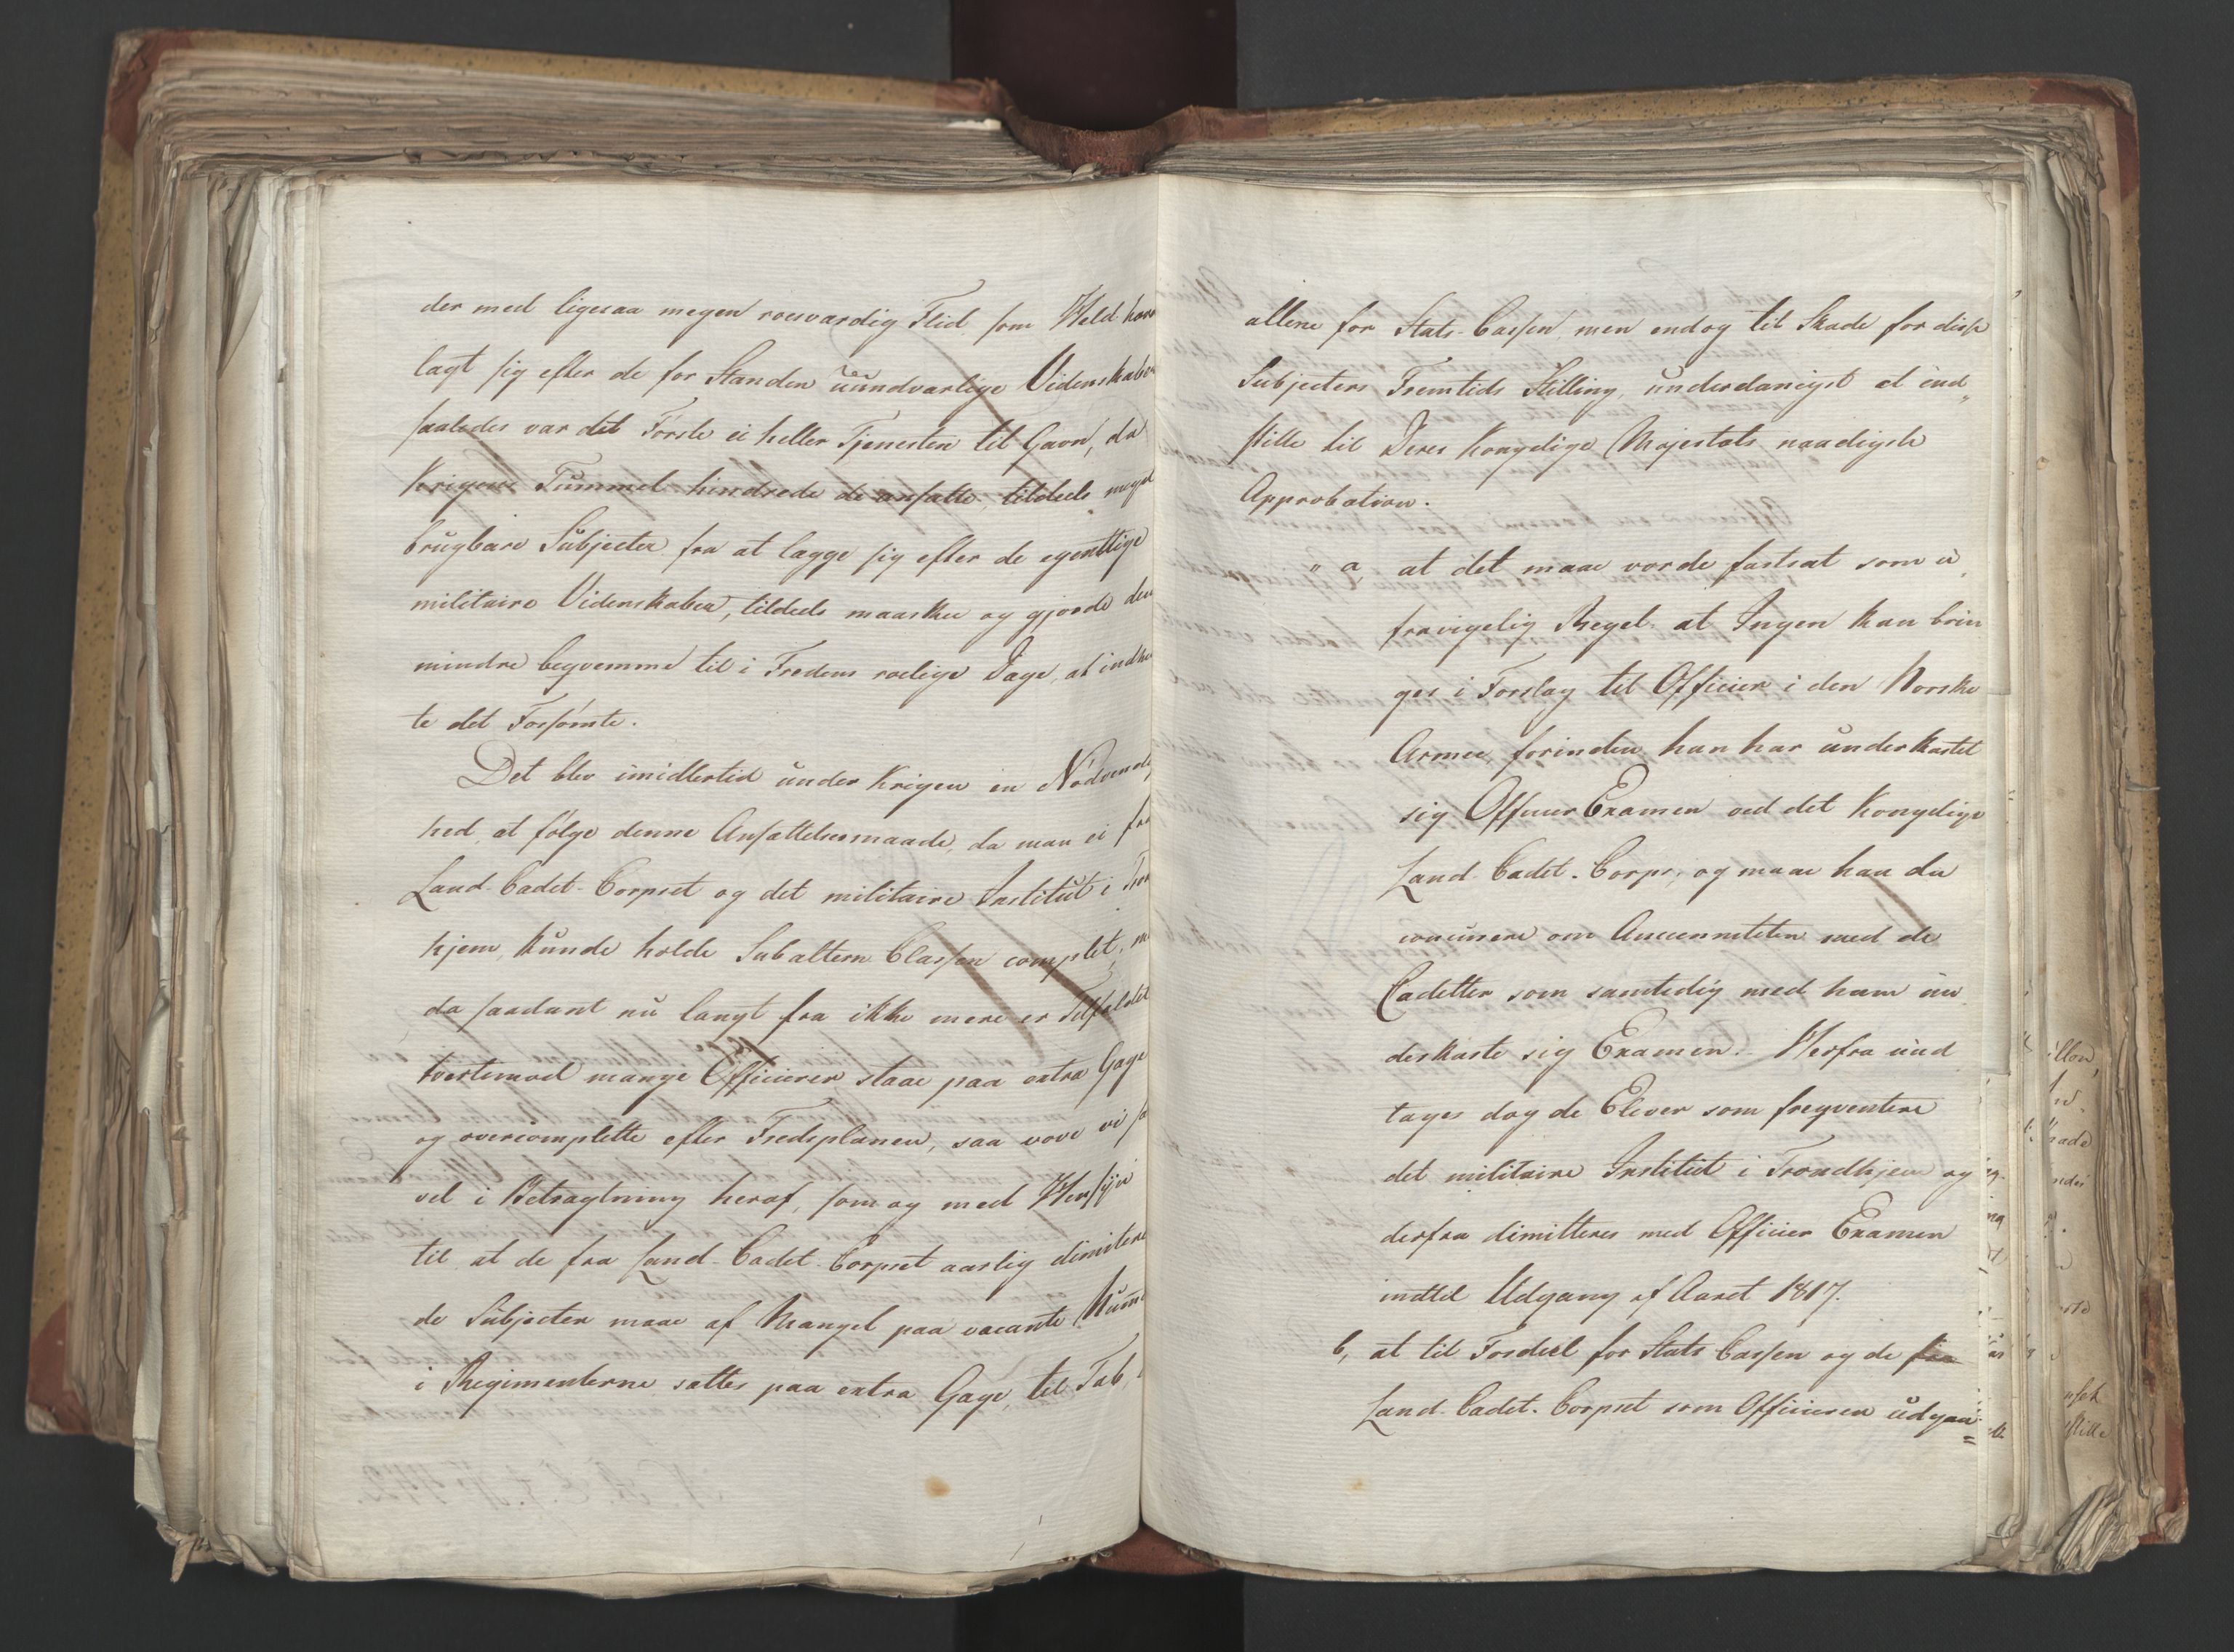 der med ligesaa megen roesværdig Flid som Held have
lagt sig efter de for Standen uundværlige Videnskaber
saaledes var det Første ei heller Tjenesten til Gavn, da
Krigens Tummel hindrede de ansatte, tildeels meget
brugbare Subjecter fra at lægge sig efter de egentlige
militaire Videnskaber, tildeels maaskee og gjorde dem
mindre beqvemme til i Fredens roelige Dage, at indhen
te det Forsømte.
Det blev imidlertid under Krigen en Nødvendig
hed, at følge denne Ansættelsesmaade, da man ei fra
Land-Cadet-Corpset og det militaire Institut i Tron
hjem, kunde holde Subaltern Classen complet, m
da saadant nu langt fra ikke mere er Tilfældet
tvertimod mange Officierer staae paa extra Gage
og overcomplette efter Fredsplanen, saa vove vi sa
vel i Betragtning heraf, som og med Hensyn
til at de fra Land-Cadet-Corpset aarlig dimitere
de Subjecter maae af Mangel paa vacante Numre
i Regimenterne sættes paa extra Gage, til Tab,
allene for Stats-Cassen, men endog til Skade for disse
Subjecters Fremtids Stilling, underdanigst at ind„
stille til Deres Kongelige Majestæts naadigste
Approbation.
" a, at det maae vorde fastsat som u„
fravigelig Regel: at Ingen kan brin
ges i Forslag til Officier i den Norske
Armee, forinden han har underkastet
sig Officier Examen ved det Kongelige
Land-Cadet-Corps, og maae han da
concurrere om Ancienniteten med de
Cadetter som samtidig med ham un
derkaste sig Examen. Herfra und
tages dog de Elever som freqventere
det militaire Institut i Trondhjem og
derfra dimitteres med Officier Examen
indtil Udgang af Aaret 1817.
b, at til Fordeel for Stats Cassen og de fra
Land-Cadet-Corpset som Officierer udgaa=